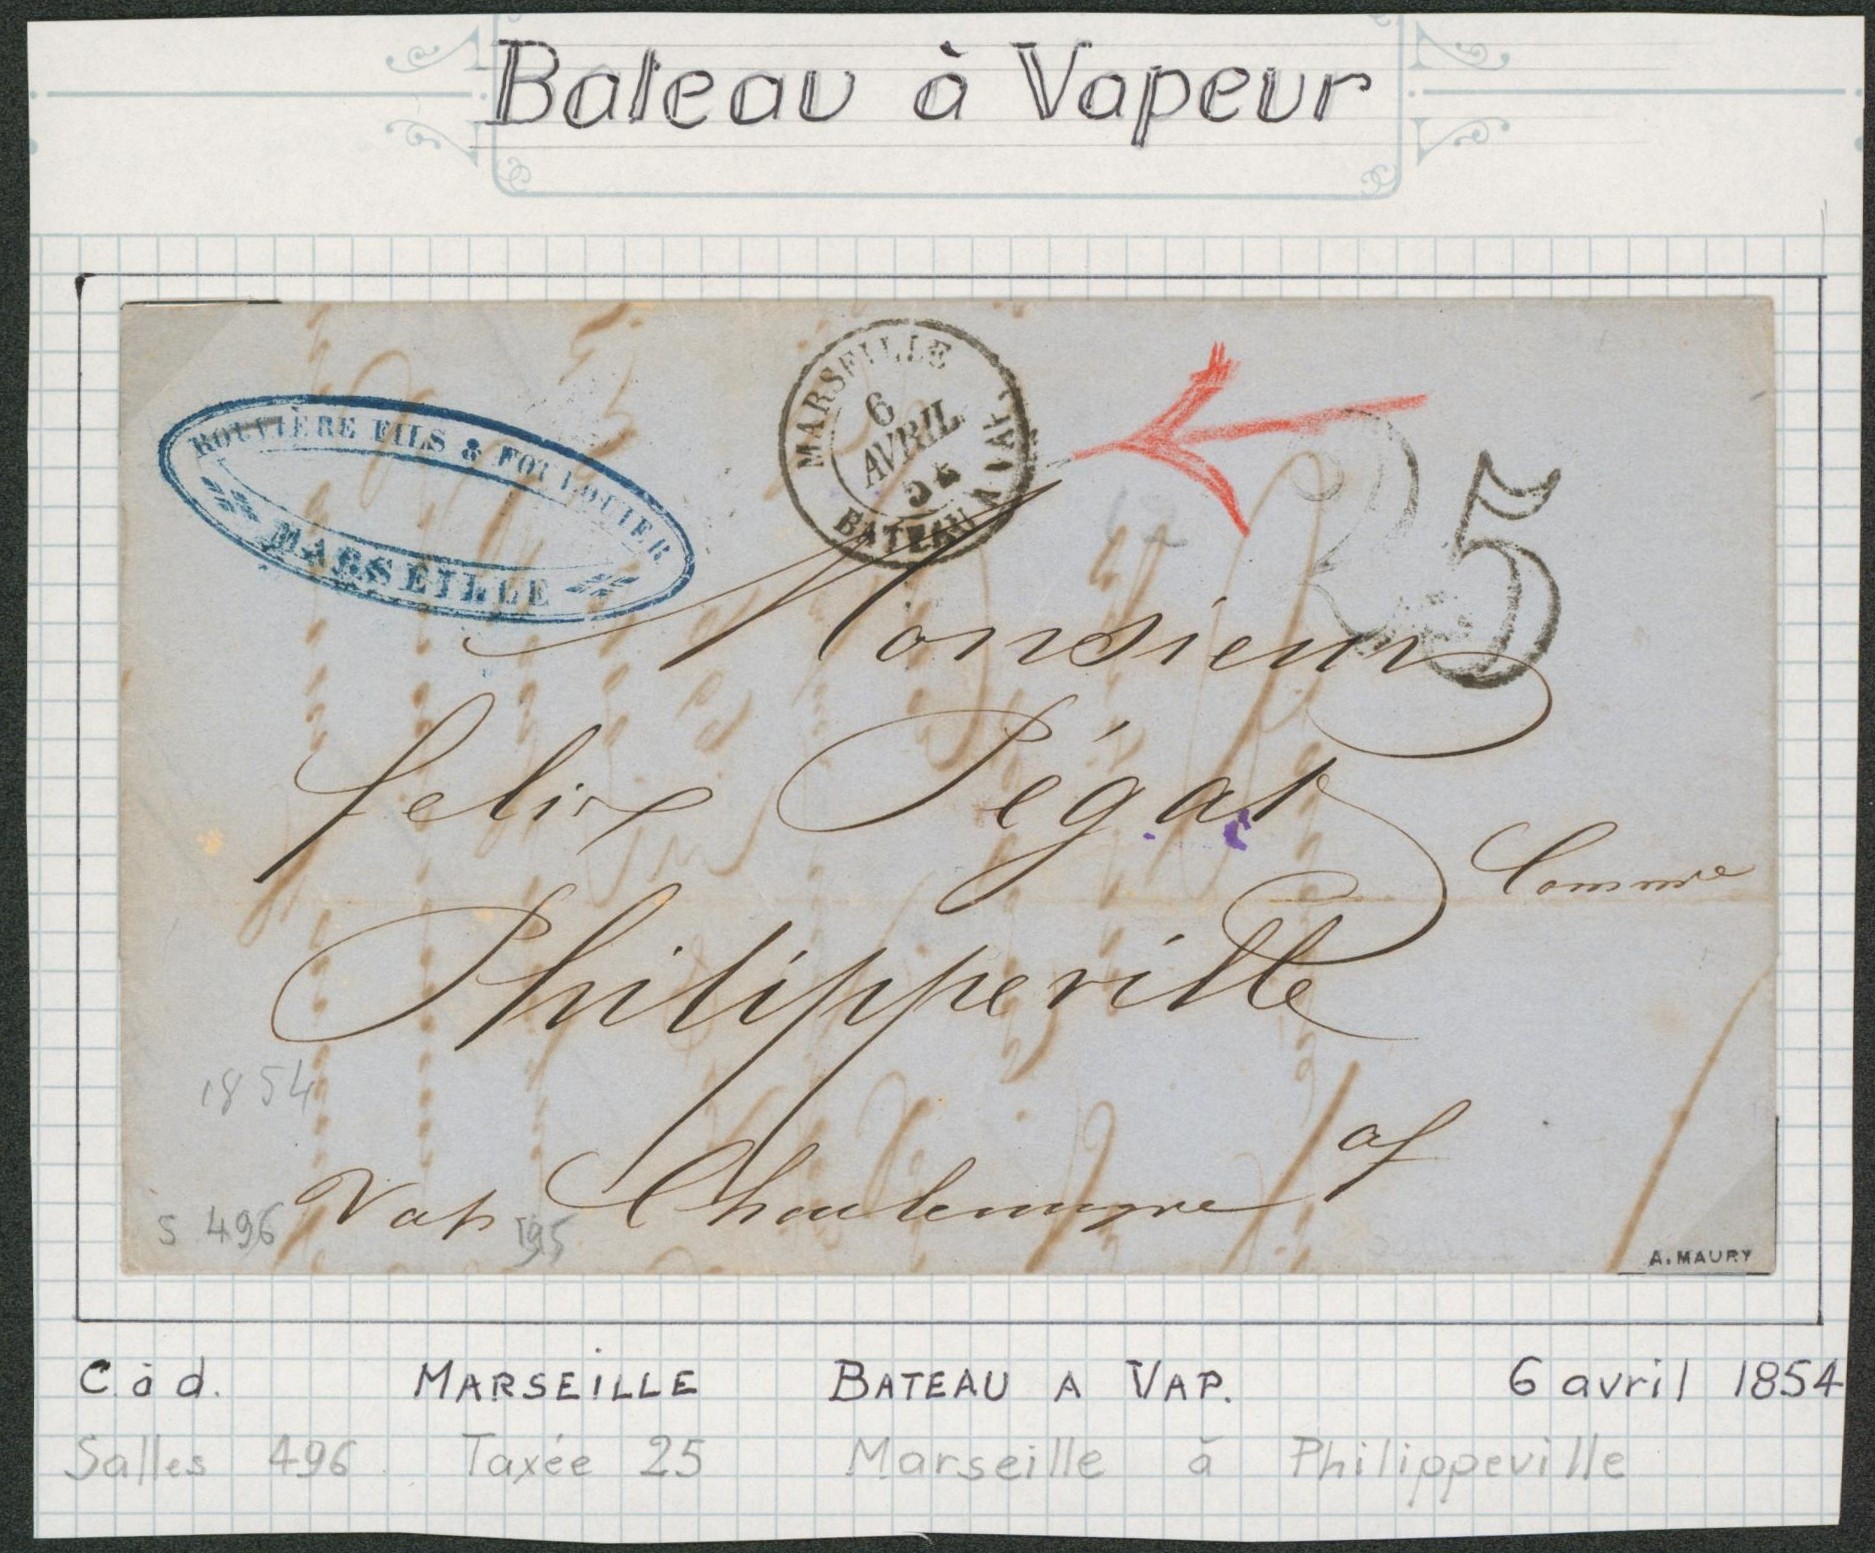 Bateau à Vapeur
MARSEILLE
6
AVRIL
54
BATEAU A VAP.
ROUVIÈRE FILS & 
MARSEILLE
25
Monsieur
felix Pégat
Comme
Philippeville
1854
af
Vap
S 496
195
A. MAURY
C.à d. MARSEILLE BATEAU A VAP. 6 avril 1854
Salles 496 Taxée 25 Marseille à Philippeville